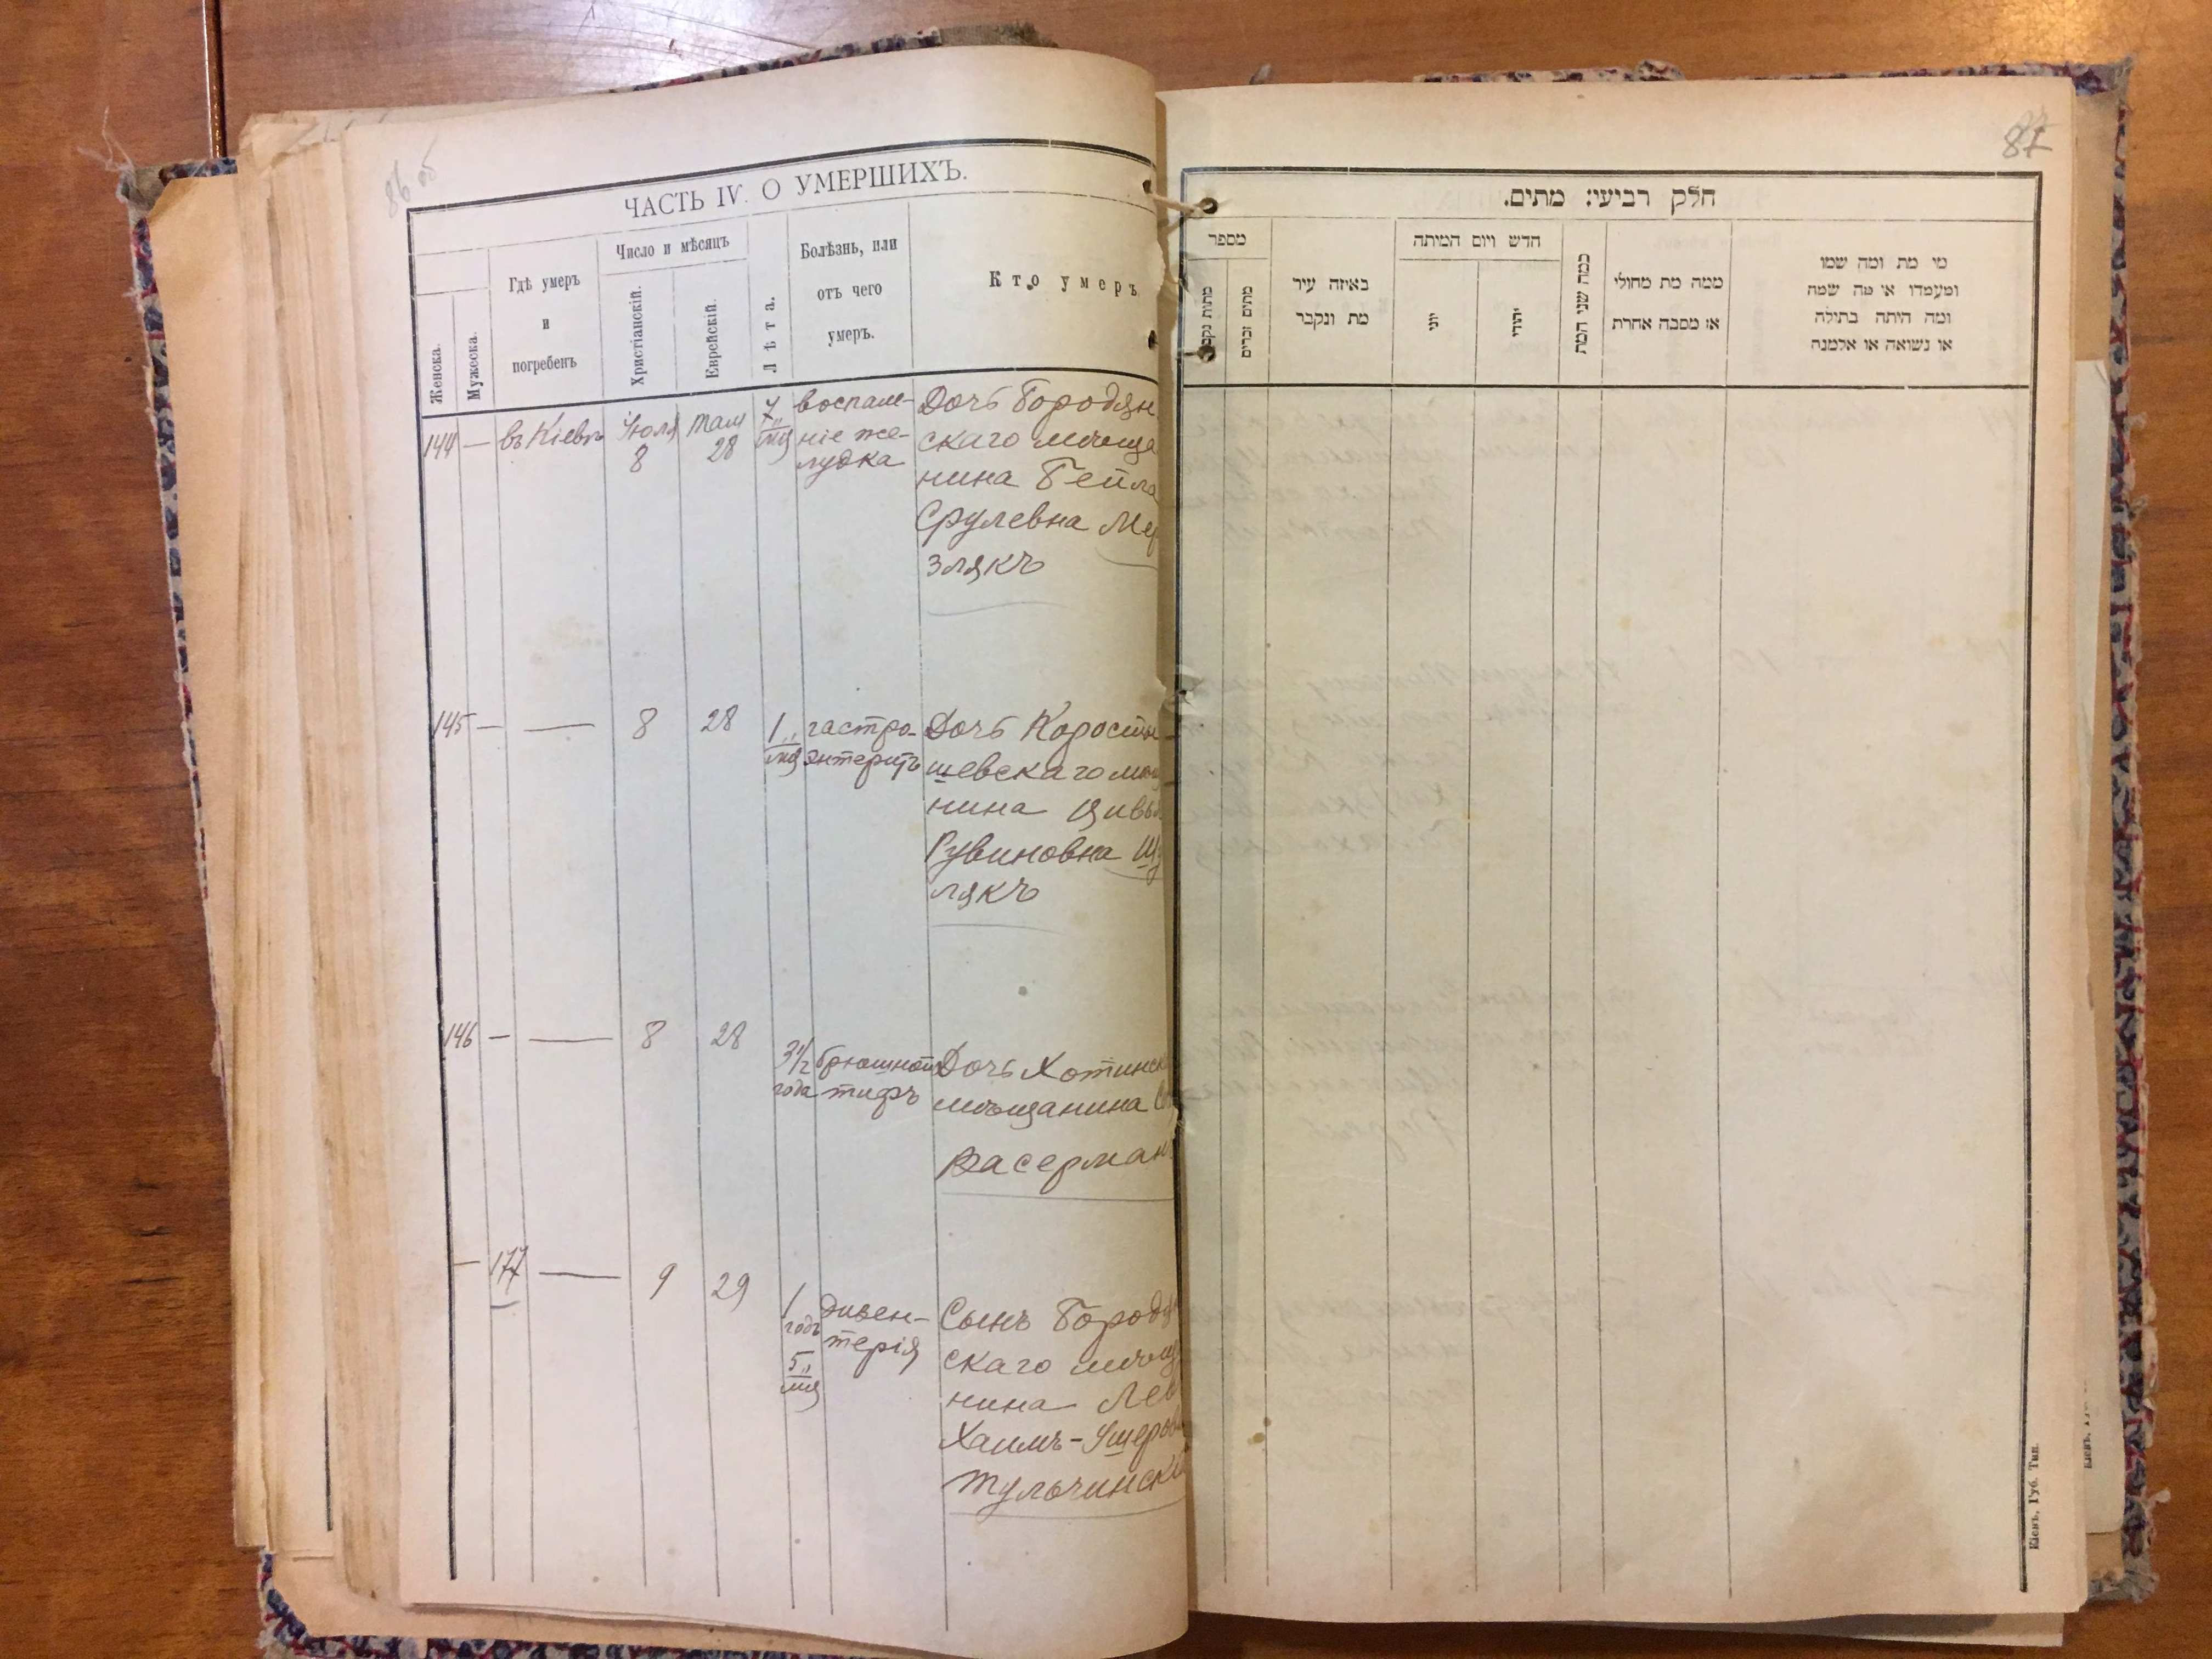 86 об
ЧАСТЬ IV. О УМЕРШИХЪ.
Женска.
Мужеска.
Гдѣ умеръ
и
погребенъ
Число и мѣсяцъ
Христіанскій.
Еврейскій.
Лѣта.
Болѣзнь, или
отъ чего
умеръ.
Кто умеръ
144 — въ Кіевѣ Іюля 8 Там 28 7 мц
воспале-
ніе же-
лудка
Дочь Городян
скаго мѣща
нина Бейла
Срулевна Мер
злякъ
145 — — 8 28 1 мц
гастро-
энтеритъ
Дочь Коросты
шевскаго мѣщ
нина Цивья
Рувиновна Шу
лякъ
146 — — 8 28 3 1/2 года
брюшной
тифъ
Дочь Хотинск
мѣщанина
Васерман
— 177 — 9 29 1 годъ 5 мц
дизен-
терія
Сынъ Городя
скаго мѣщ
нина Лев
Хаимъ-Ушеров
Тульчинскі
87
חלק רביעי: מתים.
מספר
מתות נקב
מתים זכרים
באיזה עיר
מת ונקבר
חדש ויום המיתה
יוני
יהודי
כמה שני המת
ממה מת מחולי
או מסבה אחרת
מי מת ומה שמו
ומעמדו או מה שמה
ומה היתה בתולה
או נשואה או אלמנה
Кіевъ. Губ. Тип.